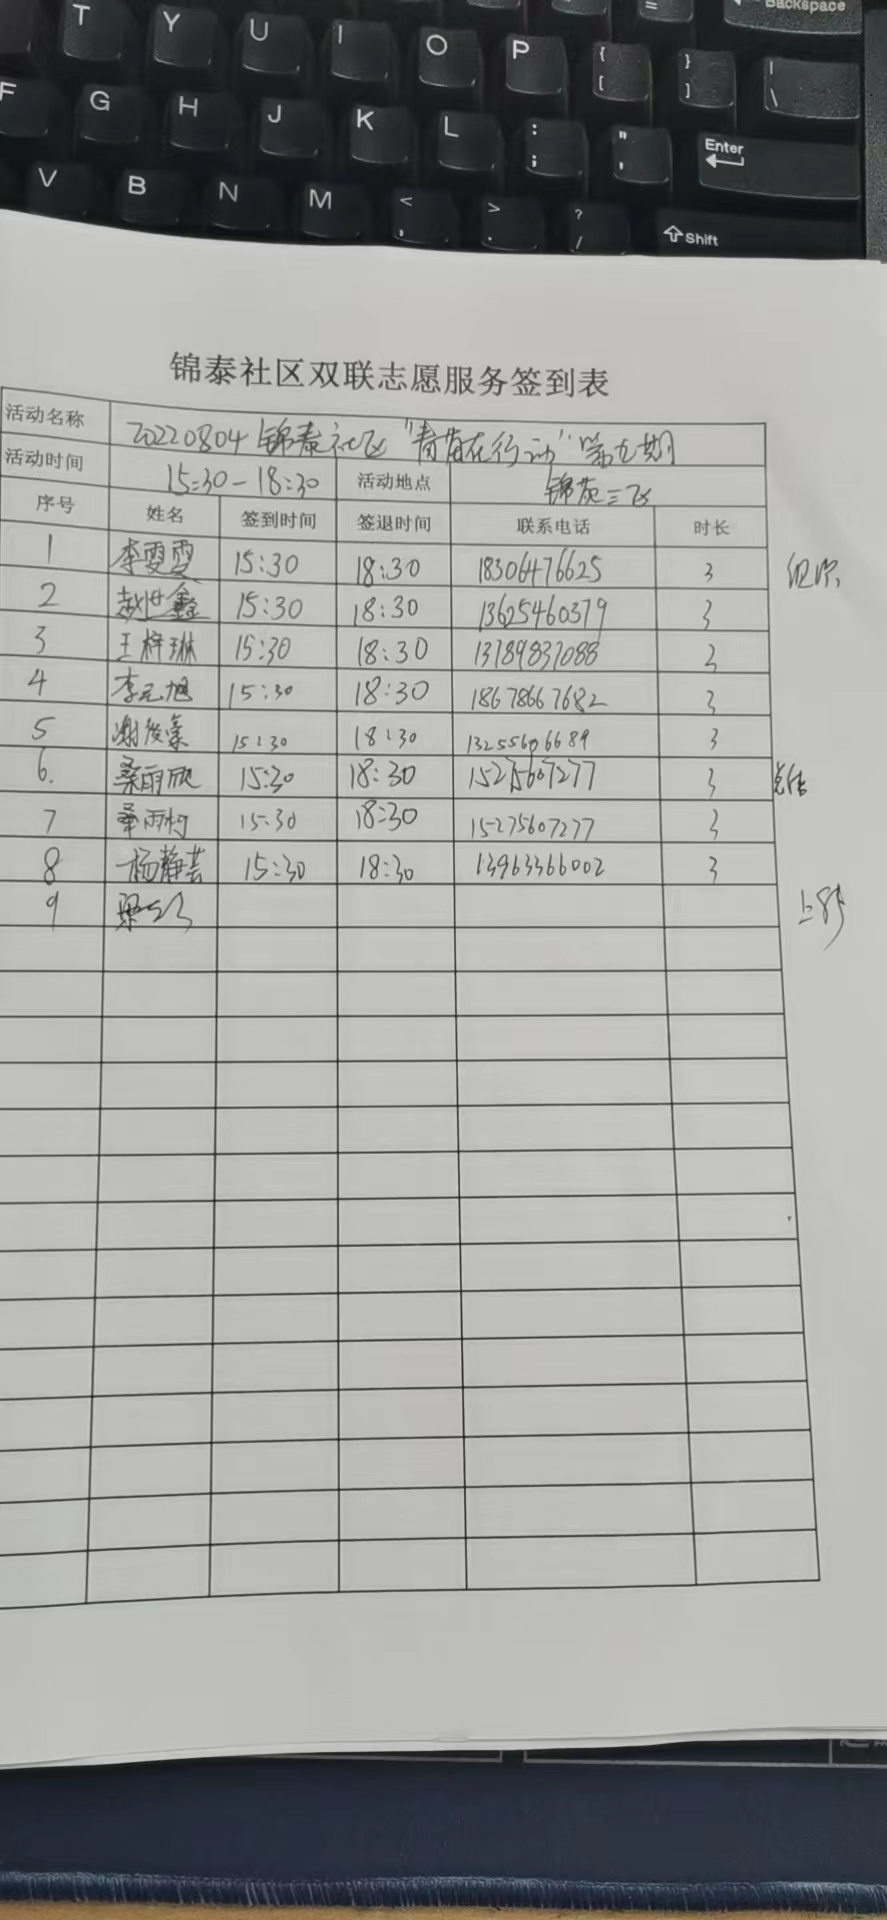 Backspace
T Y U I O P { [ } ] | \ =
F G H J K L : ; " ' Enter
V B N M < , > . ? / Shift
锦泰社区双联志愿服务签到表
活动名称 20220804锦泰社区"青苗在行动"第九期
活动时间 15:30-18:30 活动地点 锦苑三区
序号 姓名 签到时间 签退时间 联系电话 时长
1 李雯雯 15:30 18:30 18306476625 3 组织
2 赵世鑫 15:30 18:30 13625460379 3
3 王梓琳 15:30 18:30 13789837088 3
4 李元旭 15:30 18:30 18678667682 3
5 谢俊豪 15:30 18:30 13255606689 3
6. 桑雨欣 15:30 18:30 15275607277 3 总结
7 桑雨柯 15:30 18:30 15275607277 3
8 杨静芸 15:30 18:30 13963366002 3
9